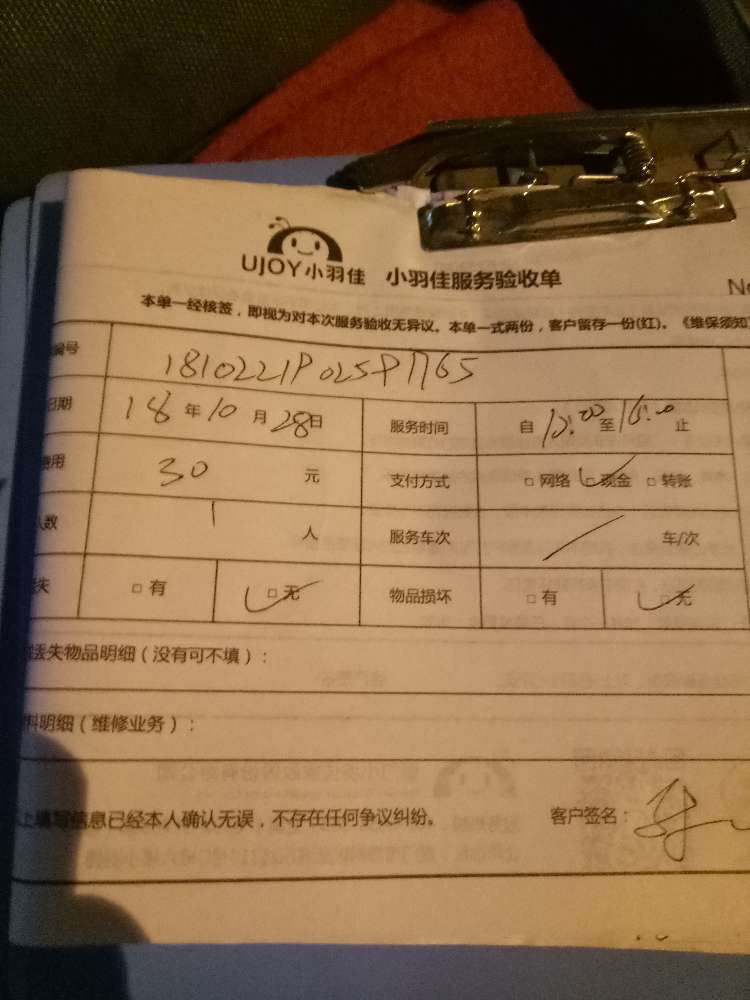 UJOY小羽佳 小羽佳服务验收单
No
本单一经核签，即视为对本次服务验收无异议。本单一式两份，客户留存一份(红)。《维保须知
编号 1810221902591765
日期 18 年 10 月 28 日 服务时间 自 至 16:00 止
费用 30 元 支付方式 □ 网络 □ 现金 □ 转账
人数 1 人 服务车次 / 车/次
失 □ 有 □ 无 物品损坏 □ 有 □ 无
丢失物品明细（没有可不填）：
料明细（维修业务）：
上填写信息已经本人确认无误，不存在任何争议纠纷。 客户签名：